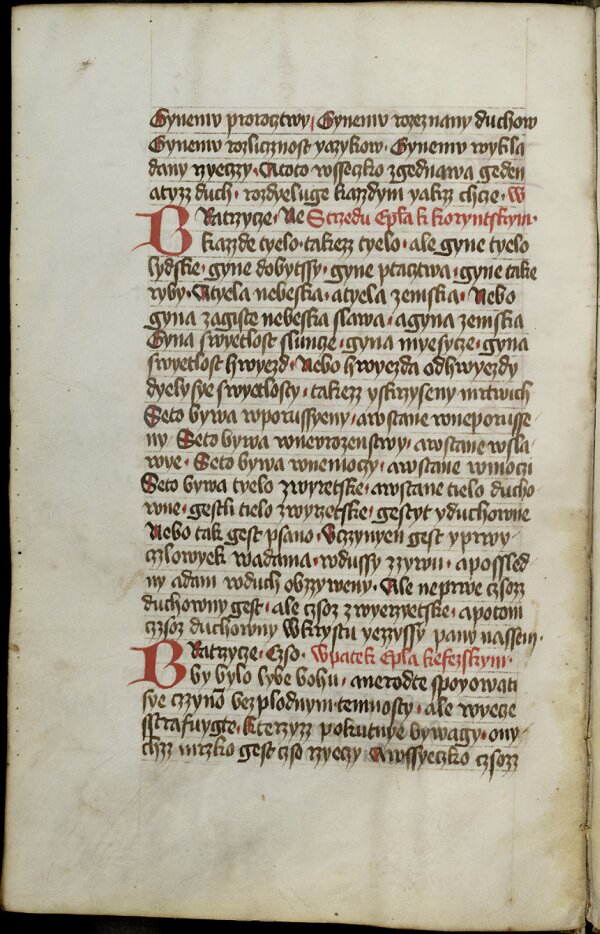 Gynemu proroctwy Gynemu rozeznany duchow
Gynemu rozlicznost yazykow · Gynemu wykla
dany rzyeczy · Atoto wsseczko zgednawa geden
atyzz duch · rozdyeluge kazzdym yakzz chcze · W
Bratrzycze · Ne Strzedu Epla k koryntskym ·
kazzde tyelo · takezz tyelo · ale gyne tyelo
lydske · gyne dobytssy · gyne ptacztwa · gyne take
ryby · Atyela nebeska · atyela zemska · Nebo
gyna zagiste nebeska slawa · agyna zemska
Gyna swyetlost sluncze · gyna myesycze · gyna
swyetlost hwyezd · Nebo hwyezda odhwyezdy
dyely sye swyetlosty · takezz yskrzyseny mrtwich
Seto bywa wporussyeny · awstane wneporusse
ny · Seto bywa wnevrozenstwy · awstane wsla
wye · Seto bywa wnemoczy · awstane wmoczi
Seto bywa tyelo zwyrzetske · awstane tielo ducho
wne · gestli tielo zwyrzetske · gestyt yduchowne
Nebo tak gest psano · Vczynyen gest yprwy
czlowyek wadama · wdussy zzywu · aposled
ny adam wduch obzzyweny · Ale neprwe czsozz
duchowny gest · ale czsoz zwyerzyetske · apotom
czzsoz duchowny Wkrystu yezzyssy panu nassem ·
Bratrzycze · Czso · Wpatek Epla kefezskym ·
by bylo lybe bohu · anerodte spoyowati
sye czzynō bezplodnym temnosty · ale wyecze
sstrafuygte · kterzyzz pokutnye bywagy · ony
chzz mrzko gest czso rzyeczy Awssyeczko czsozz